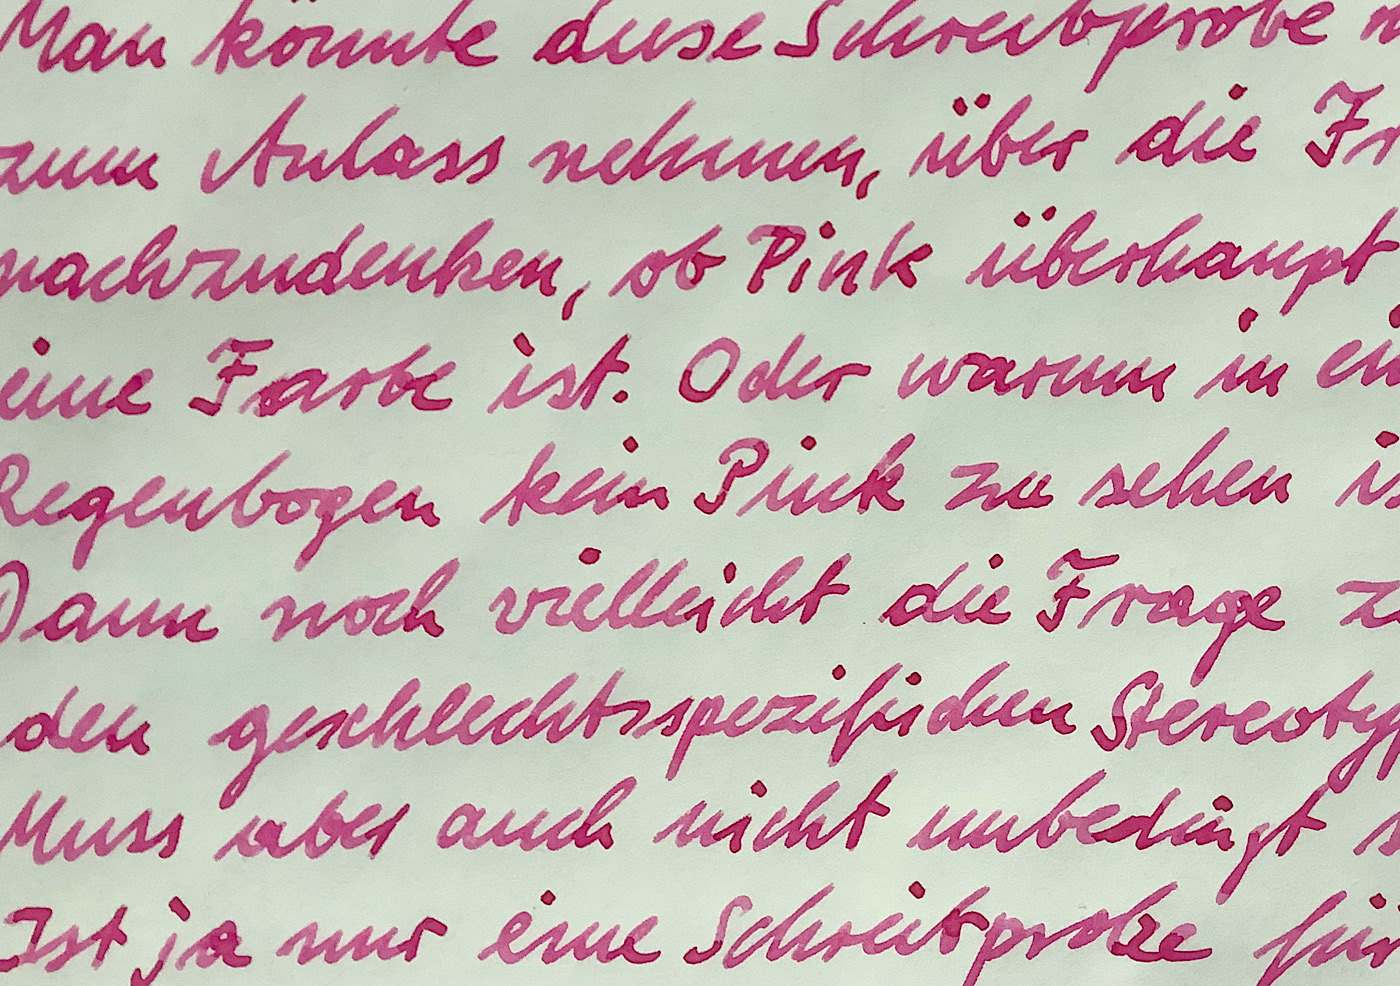 Man könnte diese Schreibprobe
zum Anlass nehmen, über die Fr
nachzudenken, ob Pink überhaupt
eine Farbe ist. Oder warum in ei
Regenbogen kein Pink zu sehen is
Dann noch vielleicht die Frage z
den geschlechtsspezifischen Stereotyp
Muss aber auch nicht unbedingt s
Ist ja nur eine Schreibprobe für